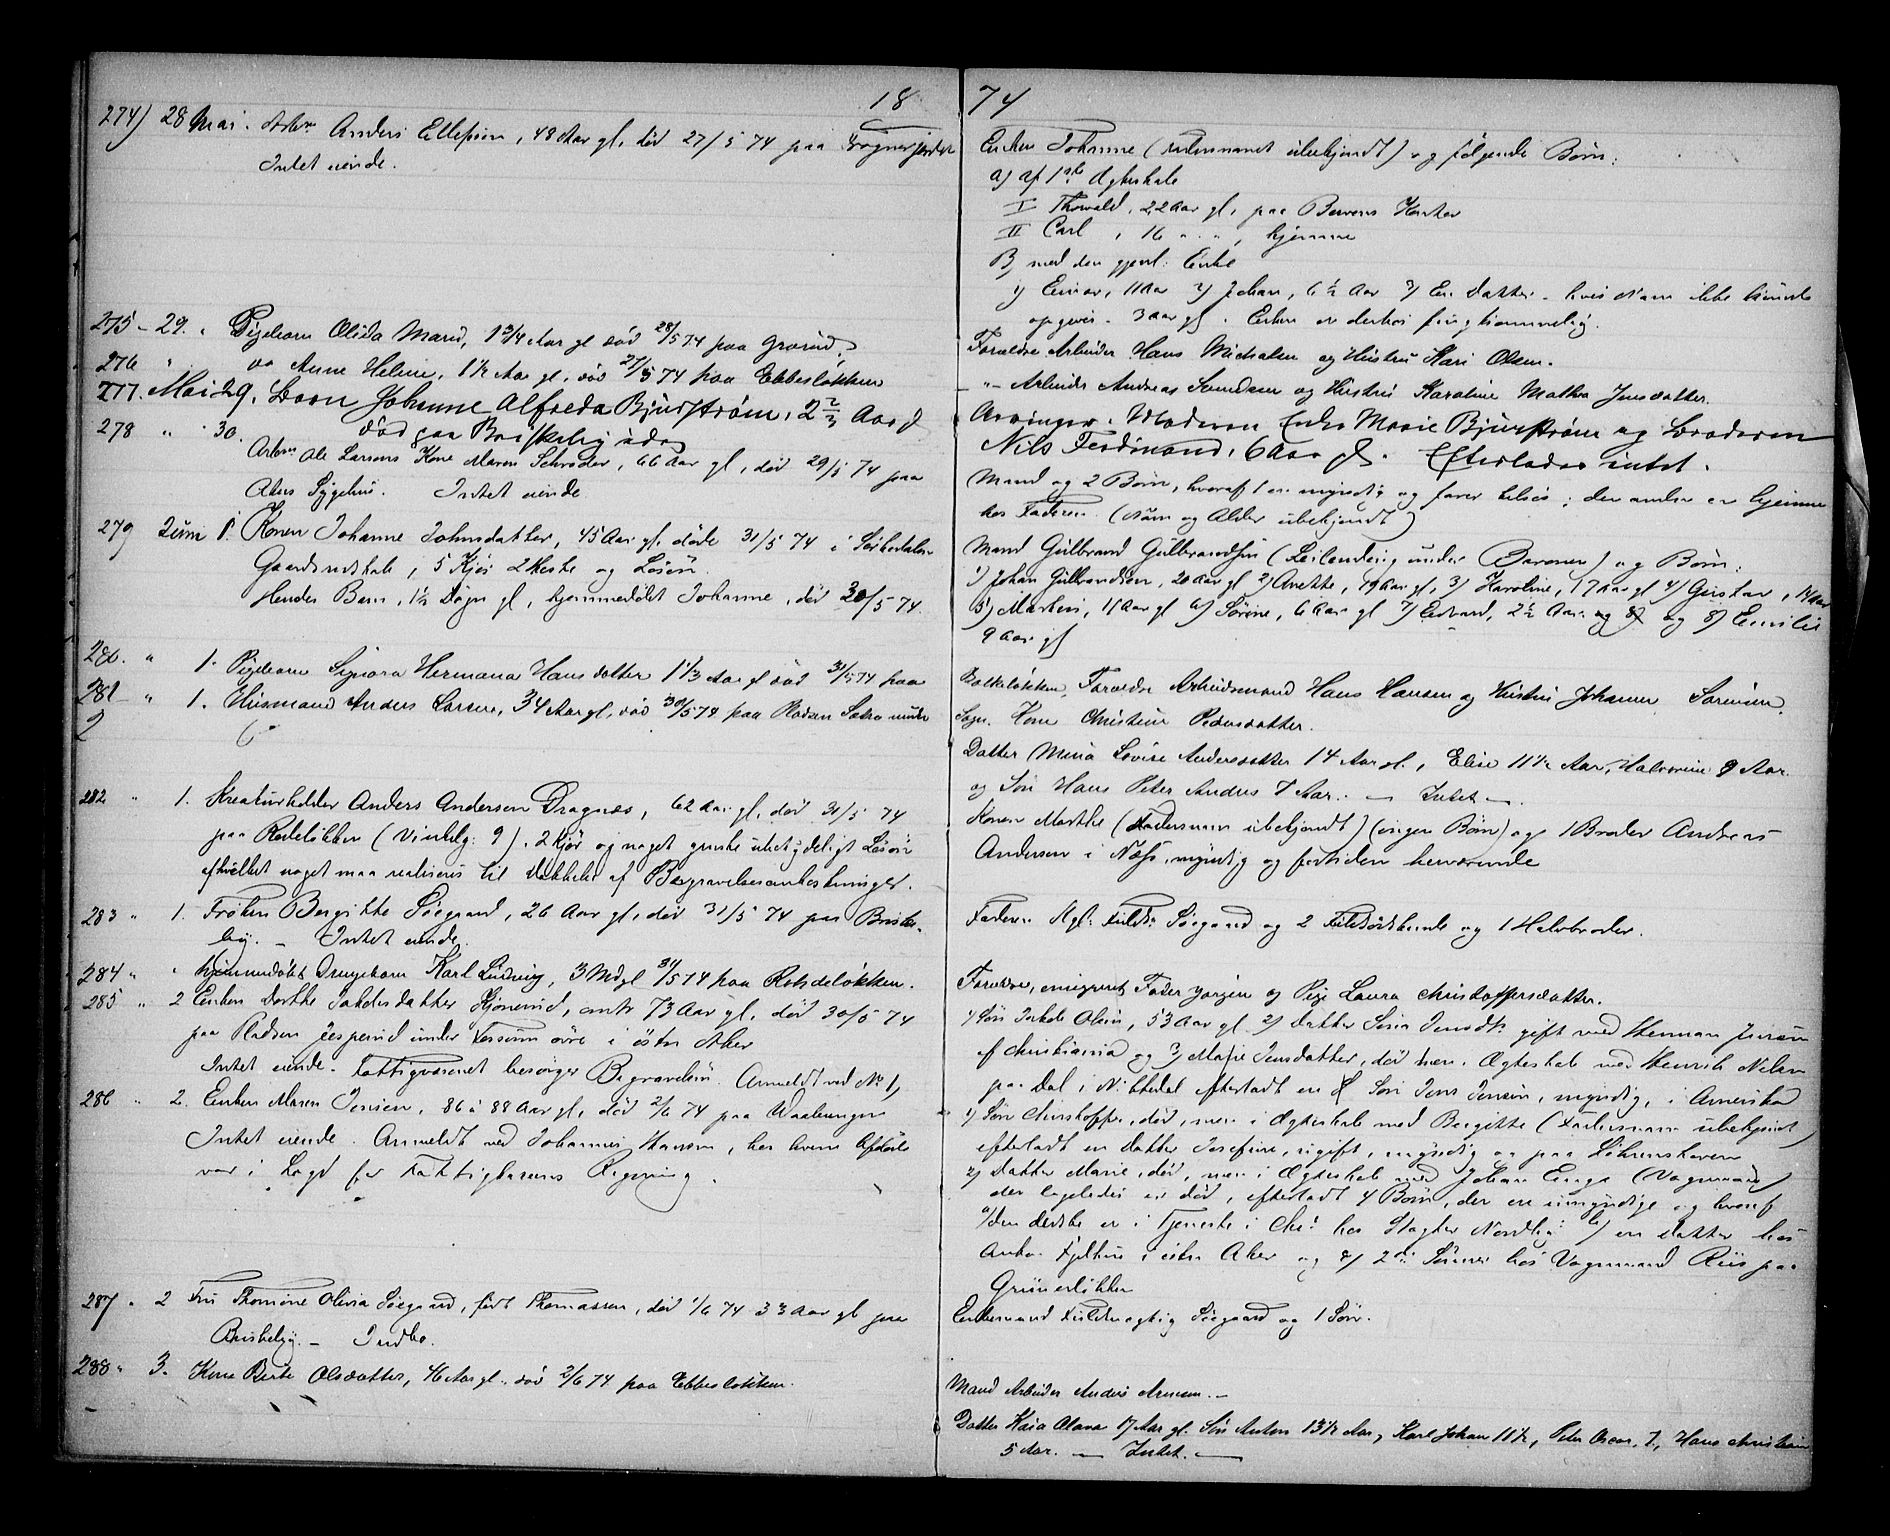 18
274) 28 Mai. Arbm Anders Ellefsen, 48 Aar gl, død 27/5 74 paa
Intet eiende.
275 - 29. " Pigebarn Olida Marie, 1 3/4 Aar gl død 28/5 74 paa Grorud,
276 " do Anne Helene, 1 1/2 Aar gl, død 27/5 74 paa Ebbesløkken
277. Mai 29. Barn Johanne Alfreda Bjurstrøm, 2 2/3 Aar gl
278 " 30. død paa Briskeby idag
Arbm Ole Larsens Kone Maren Schrøder, 66 Aar gl, død 29/5 74 paa
Akers Sygehus. Intet eiende.
279 Juni 1. Konen Johanne Johnsdatter, 45 Aar gl, døde 31/5 74 i Sørkedalen
Gaardsredskab, 5 Kjør 2 Heste og Løsøre.
Hendes Barn, 1 1/2 Døgn gl, hjemmedøbt Johanne, død 30/5 74.
280. " 1. Pigebarn Signora Hermana Hansdatter 1 1/3 Aar gl død 31/5 74 paa
281 - " 1. Husmand Anders Larsen, 34 Aar gl, død 30/5 74 paa Pladsen under
282 " 1. Kreaturholder Anders Andersen Dragnæs, 62 Aar gl, død 31/5 74
paa Rodeløkken (Vinkelg: 9). 2 Kjør og noget ganske ubetydeligt Løsøre
af hvilket noget maa realiseres til Dækkelse af Begravelsesomkostninger.
283 " 1. Frøken Bergitte Søegaard, 26 Aar gl, død 31/5 74 paa Briske-
by. - Intet eiende.
284 " " hjemmedøbt Drengebarn Karl Ludvig, 3 Md gl 31/5 74 paa Rodeløkken.
285 " 2 Enken Dorthe Jakobsdatter, omtr 73 Aar gl, død 30/5 74
paa Pladsen Jesperud under øvre i østre Aker
Intet eiende. Fattigvæsenet besørger Begravelsen. Anmeldt ved No 1,
286 " 2. Enken Maren Jensen, 86 à 88 Aar gl, død 2/6 74 paa Waalerengen
Intet eiende. Anmeldt ved Johannes Hansen, hos hvem Afdøde
var i Lægd for Fattigkassens Regning.
287 " 2 Fru Thomine Olivia Søegaard, født Thomassen, død 1/6 74 33 Aar gl paa
Briskeby. - Indbo.
288 " 3. Kone Berte Olsdatter, 46 Aar gl, død 2/6 74 paa Ebbesløkken.
74
Enken Johanne (Fadersnavnet ubekjendt) og følgende Børn:
a) af 1ste Ægteskab
I Thorvald, 22 Aar gl, paa
II Carl, 16 " " , hjemme
B) med den gjenl: Enke
1) Einar, 11 Aar 2) Johan, 6 1/2 Aar 3) En Datter - hvis Navn ikke kunde
opgives - 3 Aar gl. Enken er derhos frugtsommelig.
Forældre Arbeider Hans Michelsen og Hustru Kari Olsen.
- " - Arbeider Andreas Svendsen og Hustru Karoline Mathea Jensdatter.
Arvinger. Moderen Enke Marie Bjurstrøm og Broderen
Nils Ferdinand, 6 Aar gl. Efterlader intet.
Mand og 2 Børn, hvoraf 1 er myndig og farer tilsøs; den anden er hjemme
hos Faderen. (Navn og Alder ubekjendt)
Mand Gulbrand Gulbrandsen (Leilending under Baronen) og Børn:
1) Johan Gulbrandsen, 20 Aar gl 2) Anette, 19 Aar gl, 3) Karoline, 17 Aar gl 4) Gustav, 14 Aar
5) Martin, 11 Aar gl 6) Sørine, 6 Aar gl 7) Edvard, 2 1/2 Aar og 8) Emilie
9 Aar gl
Forældre Arbeidsmand Hans Hansen og Hustru Johanne Sørensen.
Kone Christine Pedersdatter.
Datter Mina Lovise Andersdatter 14 Aar gl, Elise 11 1/2 Aar, Halvorine 9 Aar.
og Søn Hans Peter Anders 7 Aar. - Intet -.
Konen Marthe (Fadersnavn ubekjendt) (ingen Børn) og 1 Broder Andreas
Andersen i Næs, myndig og fortiden herværende
Faderen Søegaard og 2 og 1 Halvbroder.
Forældre, emigreret Fader Jørgen og Pige Laura Christoffersdatter.
1) Søn Jakob Olsen, 53 Aar gl 2) Datter gift med Herman Jensen
af Christiania og 3) Marie Jensdatter, død men i Ægteskab med Henrik Nilsen
paa Dal i Nittedal efterladt en Søn Jens Jensen, myndig, i Amerika
1) Søn Christoffer, død, men i Ægteskab med Bergitte (Fadersnavn ubekjendt)
efterladt en Datter Josefine, ugift, myndig og paa
2) Datter Marie, død, men i Ægteskab med Johan Enga (Vognmand)
der ligeledes er død, efterladt 4 Børn, der ere umyndige og hvoraf
a) den ældste er i Tjeneste i Chra hos Slagter Nordby b) en Datter hos
i østre Aker og 2de Sønner hos Vognmand Riis paa
Grünerløkken
Enkemand Fuldmægtig Søegaard og 1 Søn.
Mand Arbeider Anders Arnesen. -
Datter Kaia Olava 17 Aar gl. Søn Anton 13 1/2 Aar, Karl Johan 11 1/2, Peter Oscar, 7, Hans Christian
5 Aar. - Intet. -